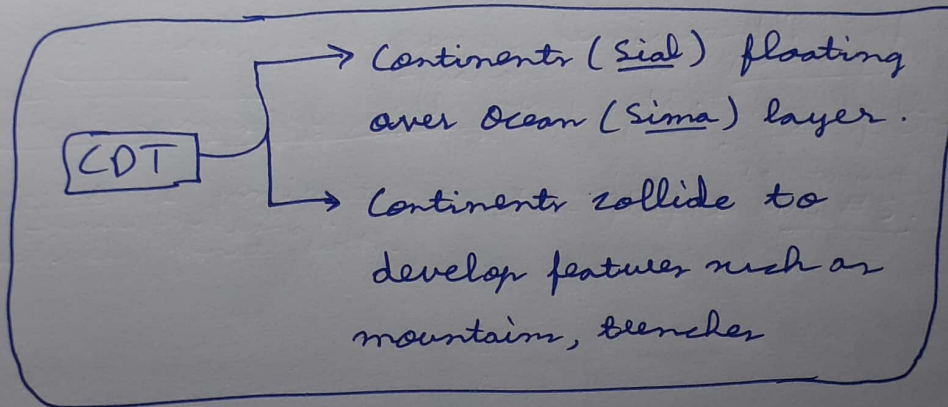 CDT
Continents (Sial) floating
over Ocean (Sima) layer.
Continents collide to
develop features such as
mountains, trenches